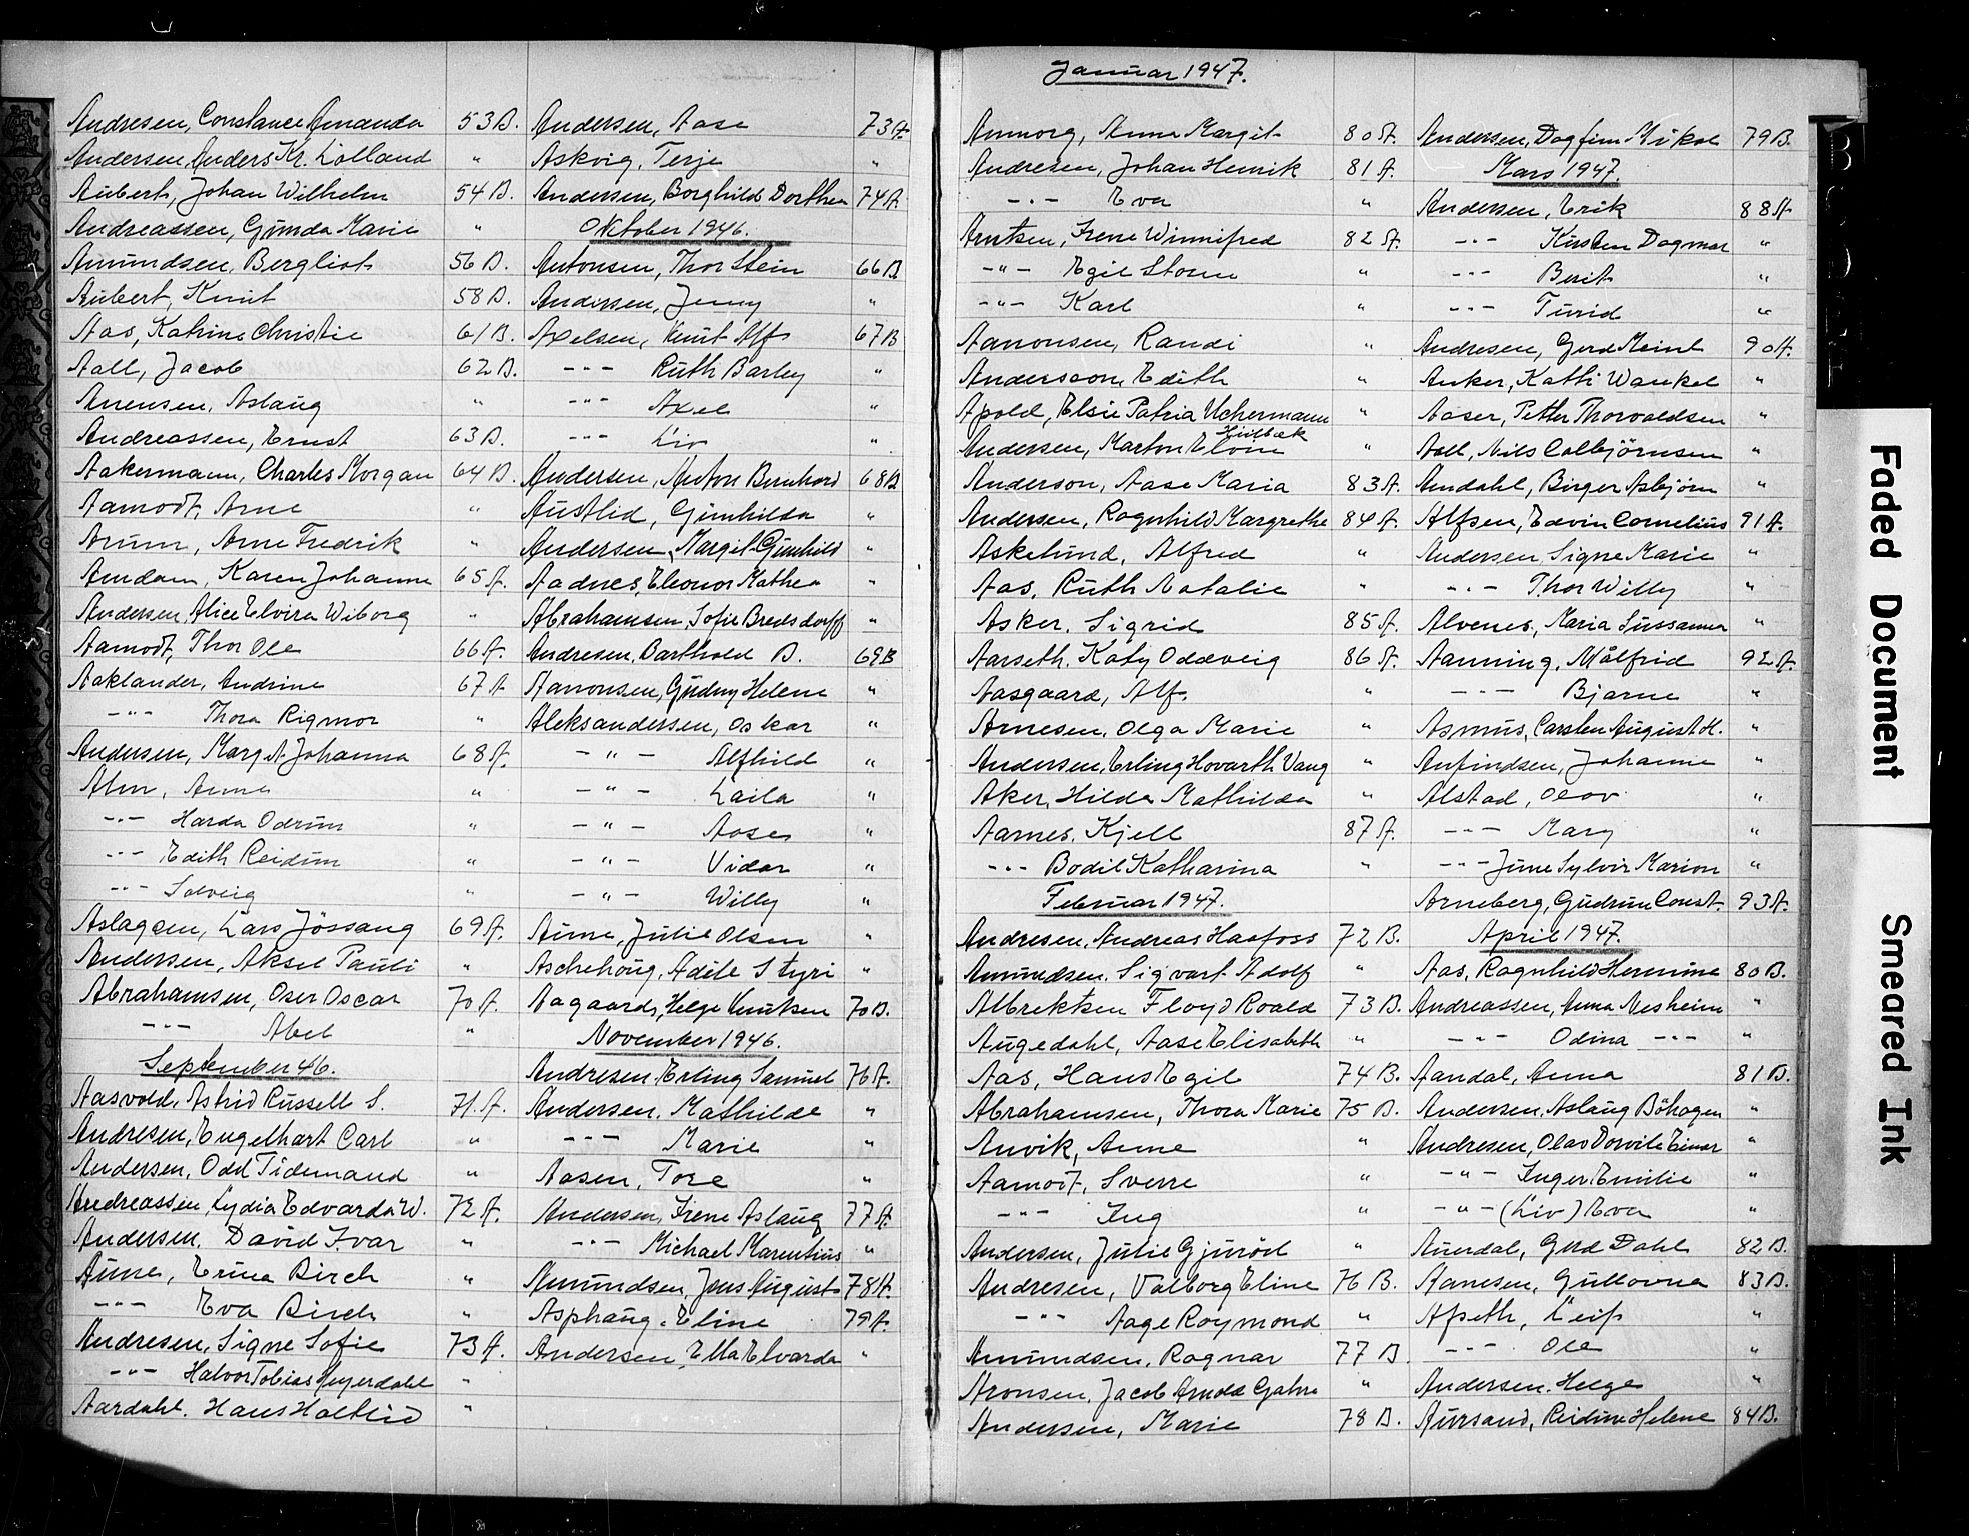 Andresen, Constance Amanda 53B.
Andersen, Anders Kr. Lolland "
Aubert, Johan Wilhelm 54B.
Andreassen, Gunda Marie "
Amundsen, Bergliot 56B.
Aubert, Knut 58B.
Aas, Katrine Christie 61B.
Aall, Jacob 62B.
Arnesen, Aslaug "
Andreassen, Ernst 63B.
Aakermann, Charles Morgan 64B.
Aamodt, Arne "
Arum, Arne Fredrik "
Amdam, Karen Johanne 65A.
Andersen, Alice Elvira Wiborg "
Aamodt, Thor Ole 66A.
Aaklander, Andrine 67A
-"- Thora Rigmor "
Andersen, Margit Johanna 68A.
Alm, Anna "
-"- Harda Odrun "
-"- Edith Reidun "
-"- Solveig "
Aslagsen, Lars Jössang 69A.
Andersen, Aksel Pauli "
Abrahamsen, Oser Oscar 70A.
-"- Abel "
September 46.
Aasvold, Astrid Russell S. 71A.
Andresen, Engelhart Carl "
Andersen, Odd Tidemand "
Andreassen, Lydia Edvarda W. 72A.
Andersen, David Ivar "
Aune, Erna Birch "
-"- Eva Birch "
Andresen, Signe Sofie 73A.
-"- Halvor Tobias Heyerdahl "
Aardahl, Hans Holtlid "
Andersen, Aase 73A.
Askvig, Terje "
Andersen, Borghild Dorthea 74A.
Oktober 1946.
Antonsen, Thor Stein 66B
Andersen, Jenny "
Axelsen, Knut Alf 67B
-"- Ruth Barley "
-"- Axel "
-"- Liv "
Andersen, Anton Bernhard 68B
Austlid, Gunhilda "
Andersen, Margit Gunhild "
Aadnes, Eleonor Mathea "
Abrahamsen, Sofie Bredsdorff "
Andresen, Barthold B. 69B
Aaronsen, Gudny Helene "
Aleksandersen, Oskar "
-"- Alfhild "
-"- Laila "
-"- Aase "
-"- Vidar "
-"- Willy "
Aune, Julie Olsen "
Aschehoug, Adele Styri "
Aagaard, Helge Knutsen 70B.
November 1946.
Andresen, Erling Samuel 76A.
Andersen, Mathilde "
-"- Marie "
Aasen, Tore "
Andersen, Irene Aslaug 77A.
-"- Michael Marentius "
Amundsen, Jens August 78A.
Asphaug, Eline 79A.
Andersen, Ella Elvarda "
Januar 1947.
Amnorg, Anna Margit 80A.
Andresen, Johan Henrik 81A.
-"- Eva "
Arntsen, Irene Winnifred 82A.
-"- Egil Storm "
-"- Karl "
Aanonsen, Randi "
Andersson, Edith "
Apold, Elsie Patria Uchermann "
Andersen, Marton Eloni Hülbæk "
Anderson, Aase Maria 83A.
Andersen, Ragnhild Margrethe 84A.
Askelund, Alfred "
Aas, Ruth Natalie "
Asker, Sigrid 85A.
Aarseth, Katy Oddveig 86A.
Aasgaard, Alf. "
Arnesen, Olga Marie "
Andersen, Erling Hovarth Vang "
Aker, Hilda Mathilda "
Aarnes, Kjell 87A.
-"- Bodil Katharina "
Februar 1947.
Andresen, Andreas Haafoss 72B.
Amundsen, Sigvart Adolf "
Albrektsen Floyd Roald 73B.
Augedahl, Aase Elisabeth "
Aas, Hans Egil 74B.
Abrahamsen, Thora Marie 75B.
Anvik, Arne "
Aamodt, Sverre "
-"- Ing "
Andersen, Julie Gjuröd "
Andresen, Valborg Eline 76B.
-"- Aage Roymond "
Amundsen, Ragnar 77B.
Aronsen, Jacob Arnold Gahre "
Andersen, Marie 78B.
Andersen, Dagfinn Mikal 79B.
Mars 1947.
Andersen, Erik 88A
-"- Kirsten Dagmar "
-"- Berit "
-"- Turid "
Andresen, Gerd Meint 90A.
Anker, Kathi Wankel "
Aaser, Petter Thorvaldsen "
Aall, Nils Colbjörnsen "
Amdahl, Birger Asbjörn "
Alfsen, Edvin Cornelius 91A.
Andersen, Signe Marie "
-"- Thor Willy "
Alvenes, Maria Sussanna "
Aanning, Målfrid 92A.
-"- Bjarne "
Asmus, Carsten August H. "
Anfindsen, Johanne "
Alstad, Olov "
-"- Mary "
-"- June Sylvir Marion "
Arneberg, Gudrun Const. 93A.
April 1947.
Aas, Ragnhild Hermine 80B.
Andreassen, Anna Nesheim "
-"- Odina -"- "
Aandal, Anna 81B.
Andersen, Aslaug Böhagen "
Andresen, Olav Dorvile Einar "
-"- Inger Emilie "
-"- (Liv) Eva "
Aurdal, Gerd Dahl 82B.
Aanesen, Gullovna 83B.
Apseth, Leif "
-"- Ole "
Andersen, Helge "
Aursand, Reidun Helene 84B.
B
C
D
E
F
Faded Document
Smeared Ink